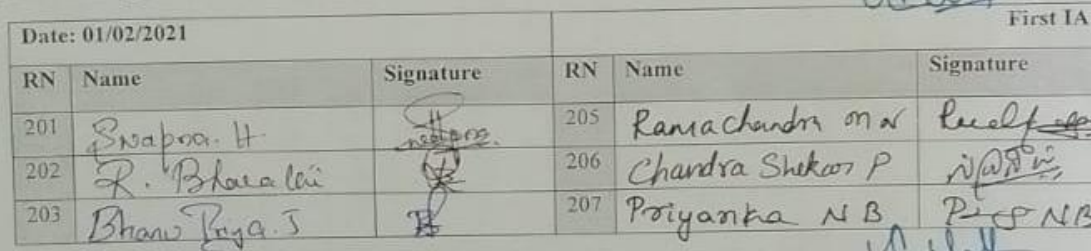 Date: 01/02/2021 First IA
RN Name Signature RN Name Signature
201 Swapna. H 205 Ramachandra M N
202 R. Bharathi 206 Chandra Shekar P
203 Bhanu Priya. J 207 Priyanka N B